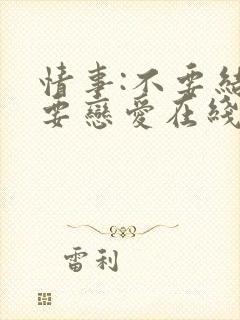 情事:不要結
要戀愛在綫
雷利